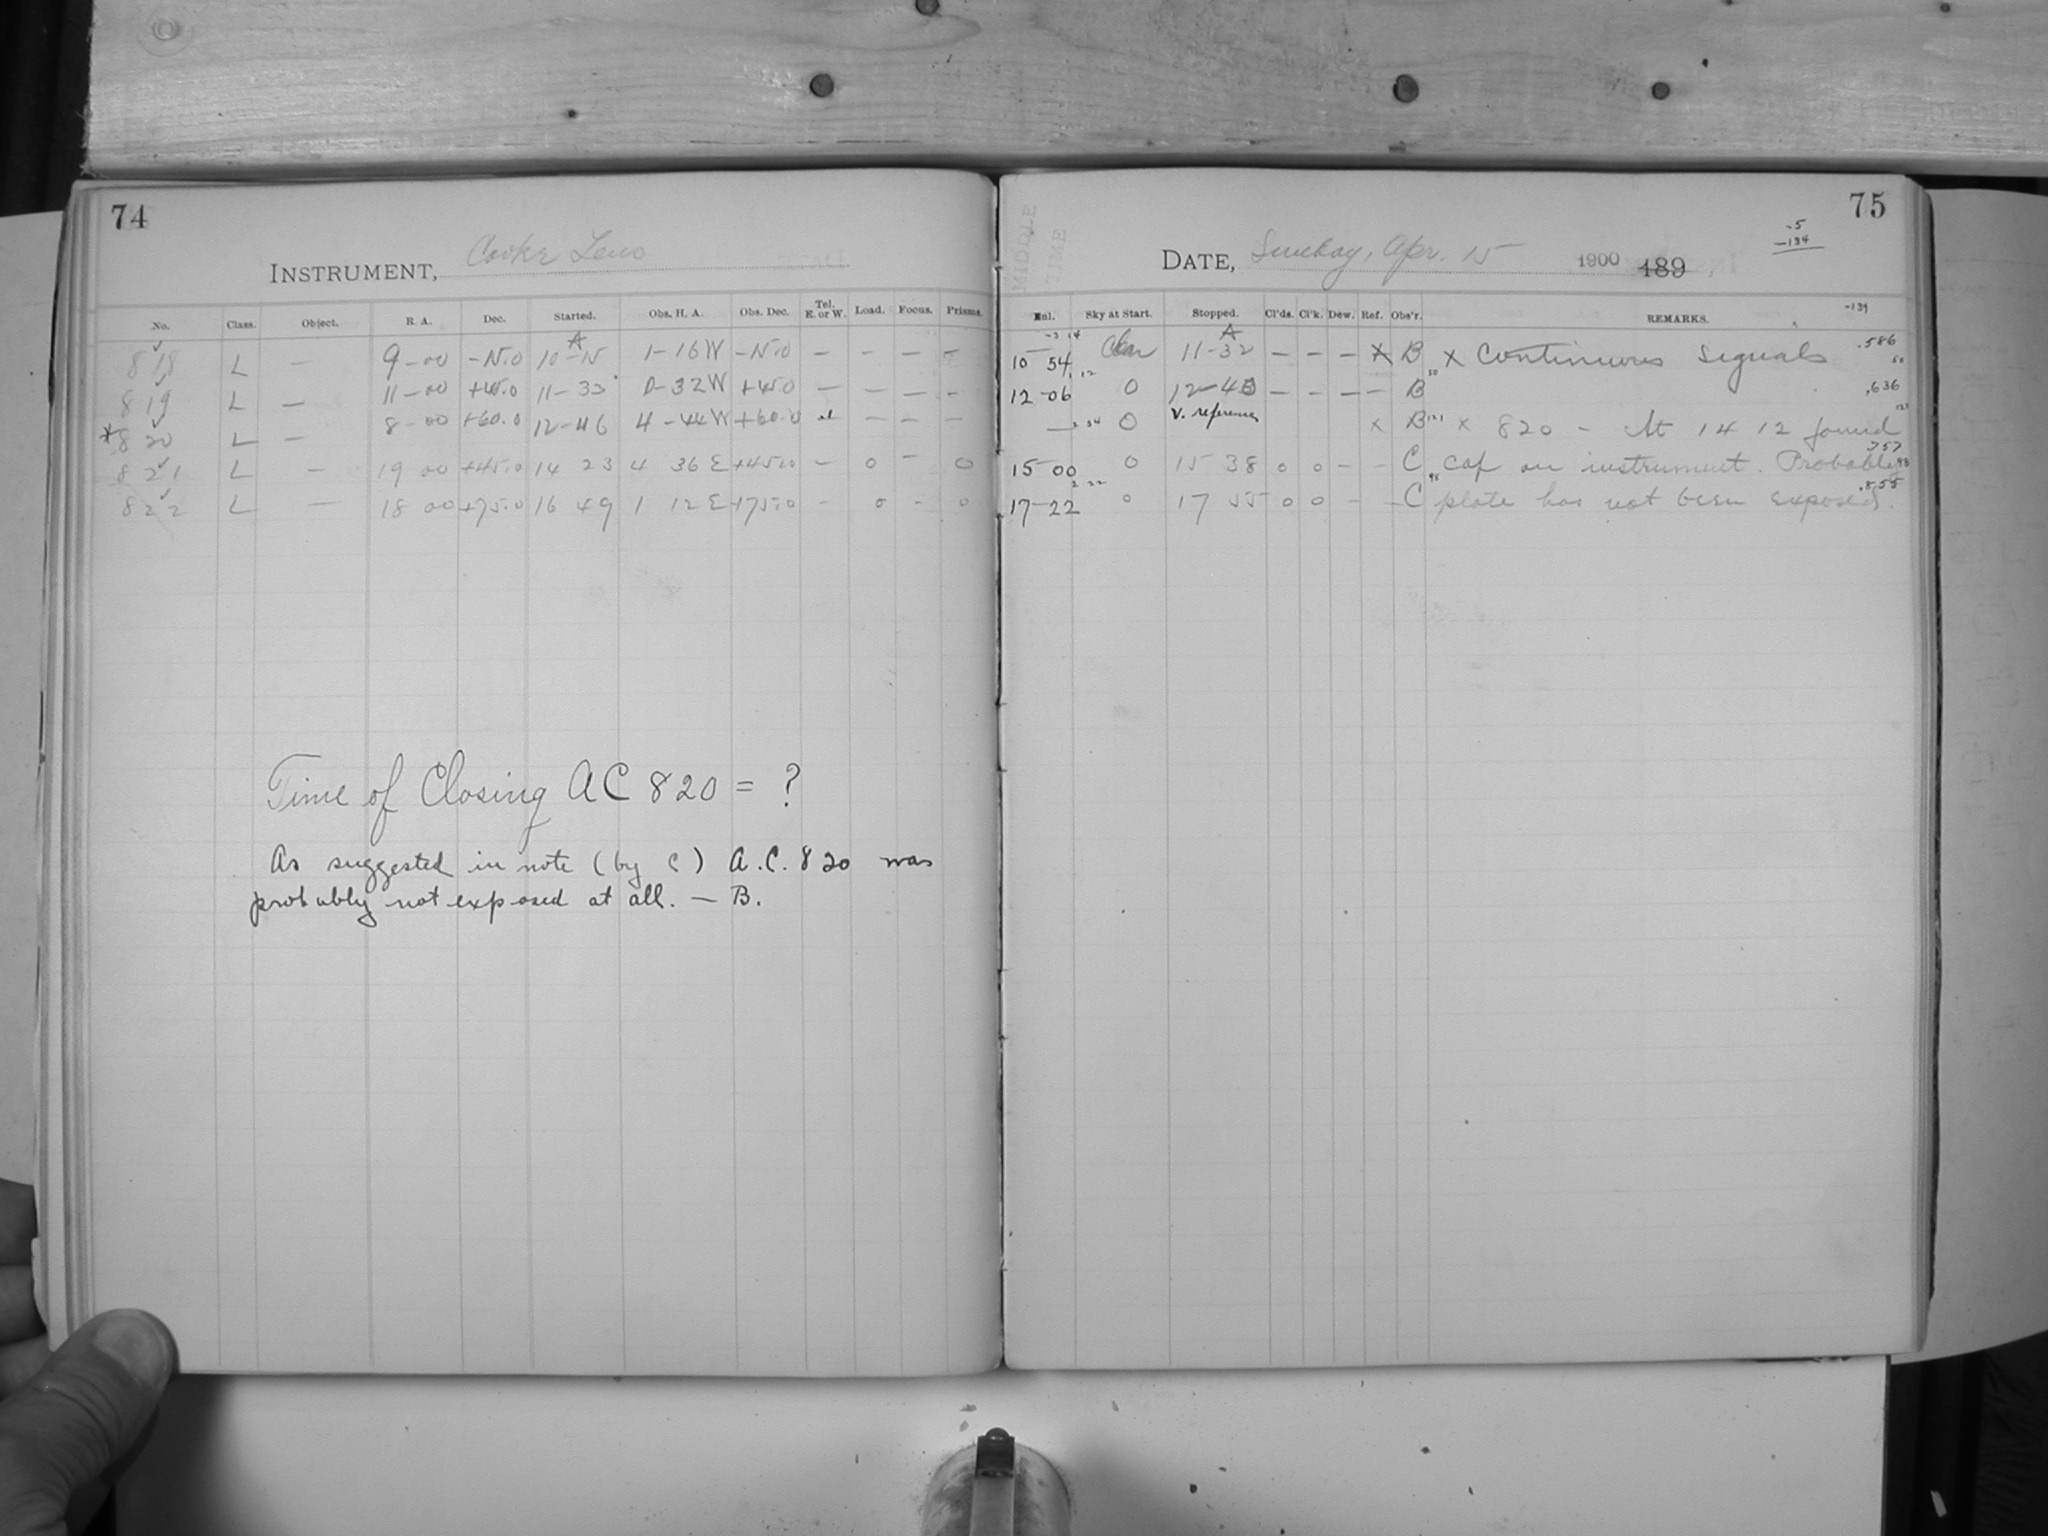 74
INSTRUMENT, Cooke Lens
No. Class. Object. R. A. Dec. Started. Obs. H. A. Obs. Dec. Tel. E. or W. Load. Focus. Prisms.
818 L — 9-00 -15.0 10-15 1-16W -15.0 — — — —
819 L — 11-00 +45.0 11-33 0-32W +45.0 — — — —
*820 L — 8-00 +60.0 12-46 4-44W +60.0 — — —
821 L — 19 00 +45.0 14 23 4 36 E +45.0 - 0 - 0
822 L — 18 00 +75.0 16 49 1 12 E +75.0 - 0 - 0
Time of Closing A C 820 = ?
As suggested in note (by C) A.C. 820 was
probably not exposed at all. — B.
75
-5
-134
MIDDLE
TIME
DATE, Sunday, Apr. 15 1900 189
Sky at Start. Stopped. Cl'ds. Cl'k. Dew. Ref. Obs'r. REMARKS. -139
10 54 Clear 11-32 — — — X B X Continuous Signals .586
12-06 0 12-45 — — — — B .636
— 0 v. reference x B x 820 - At 14 12 found
15-00 0 15 38 0 0 - - C cap on instrument. Probable 757
17-22 0 17 55 0 0 - - C plate has not been exposed. .855